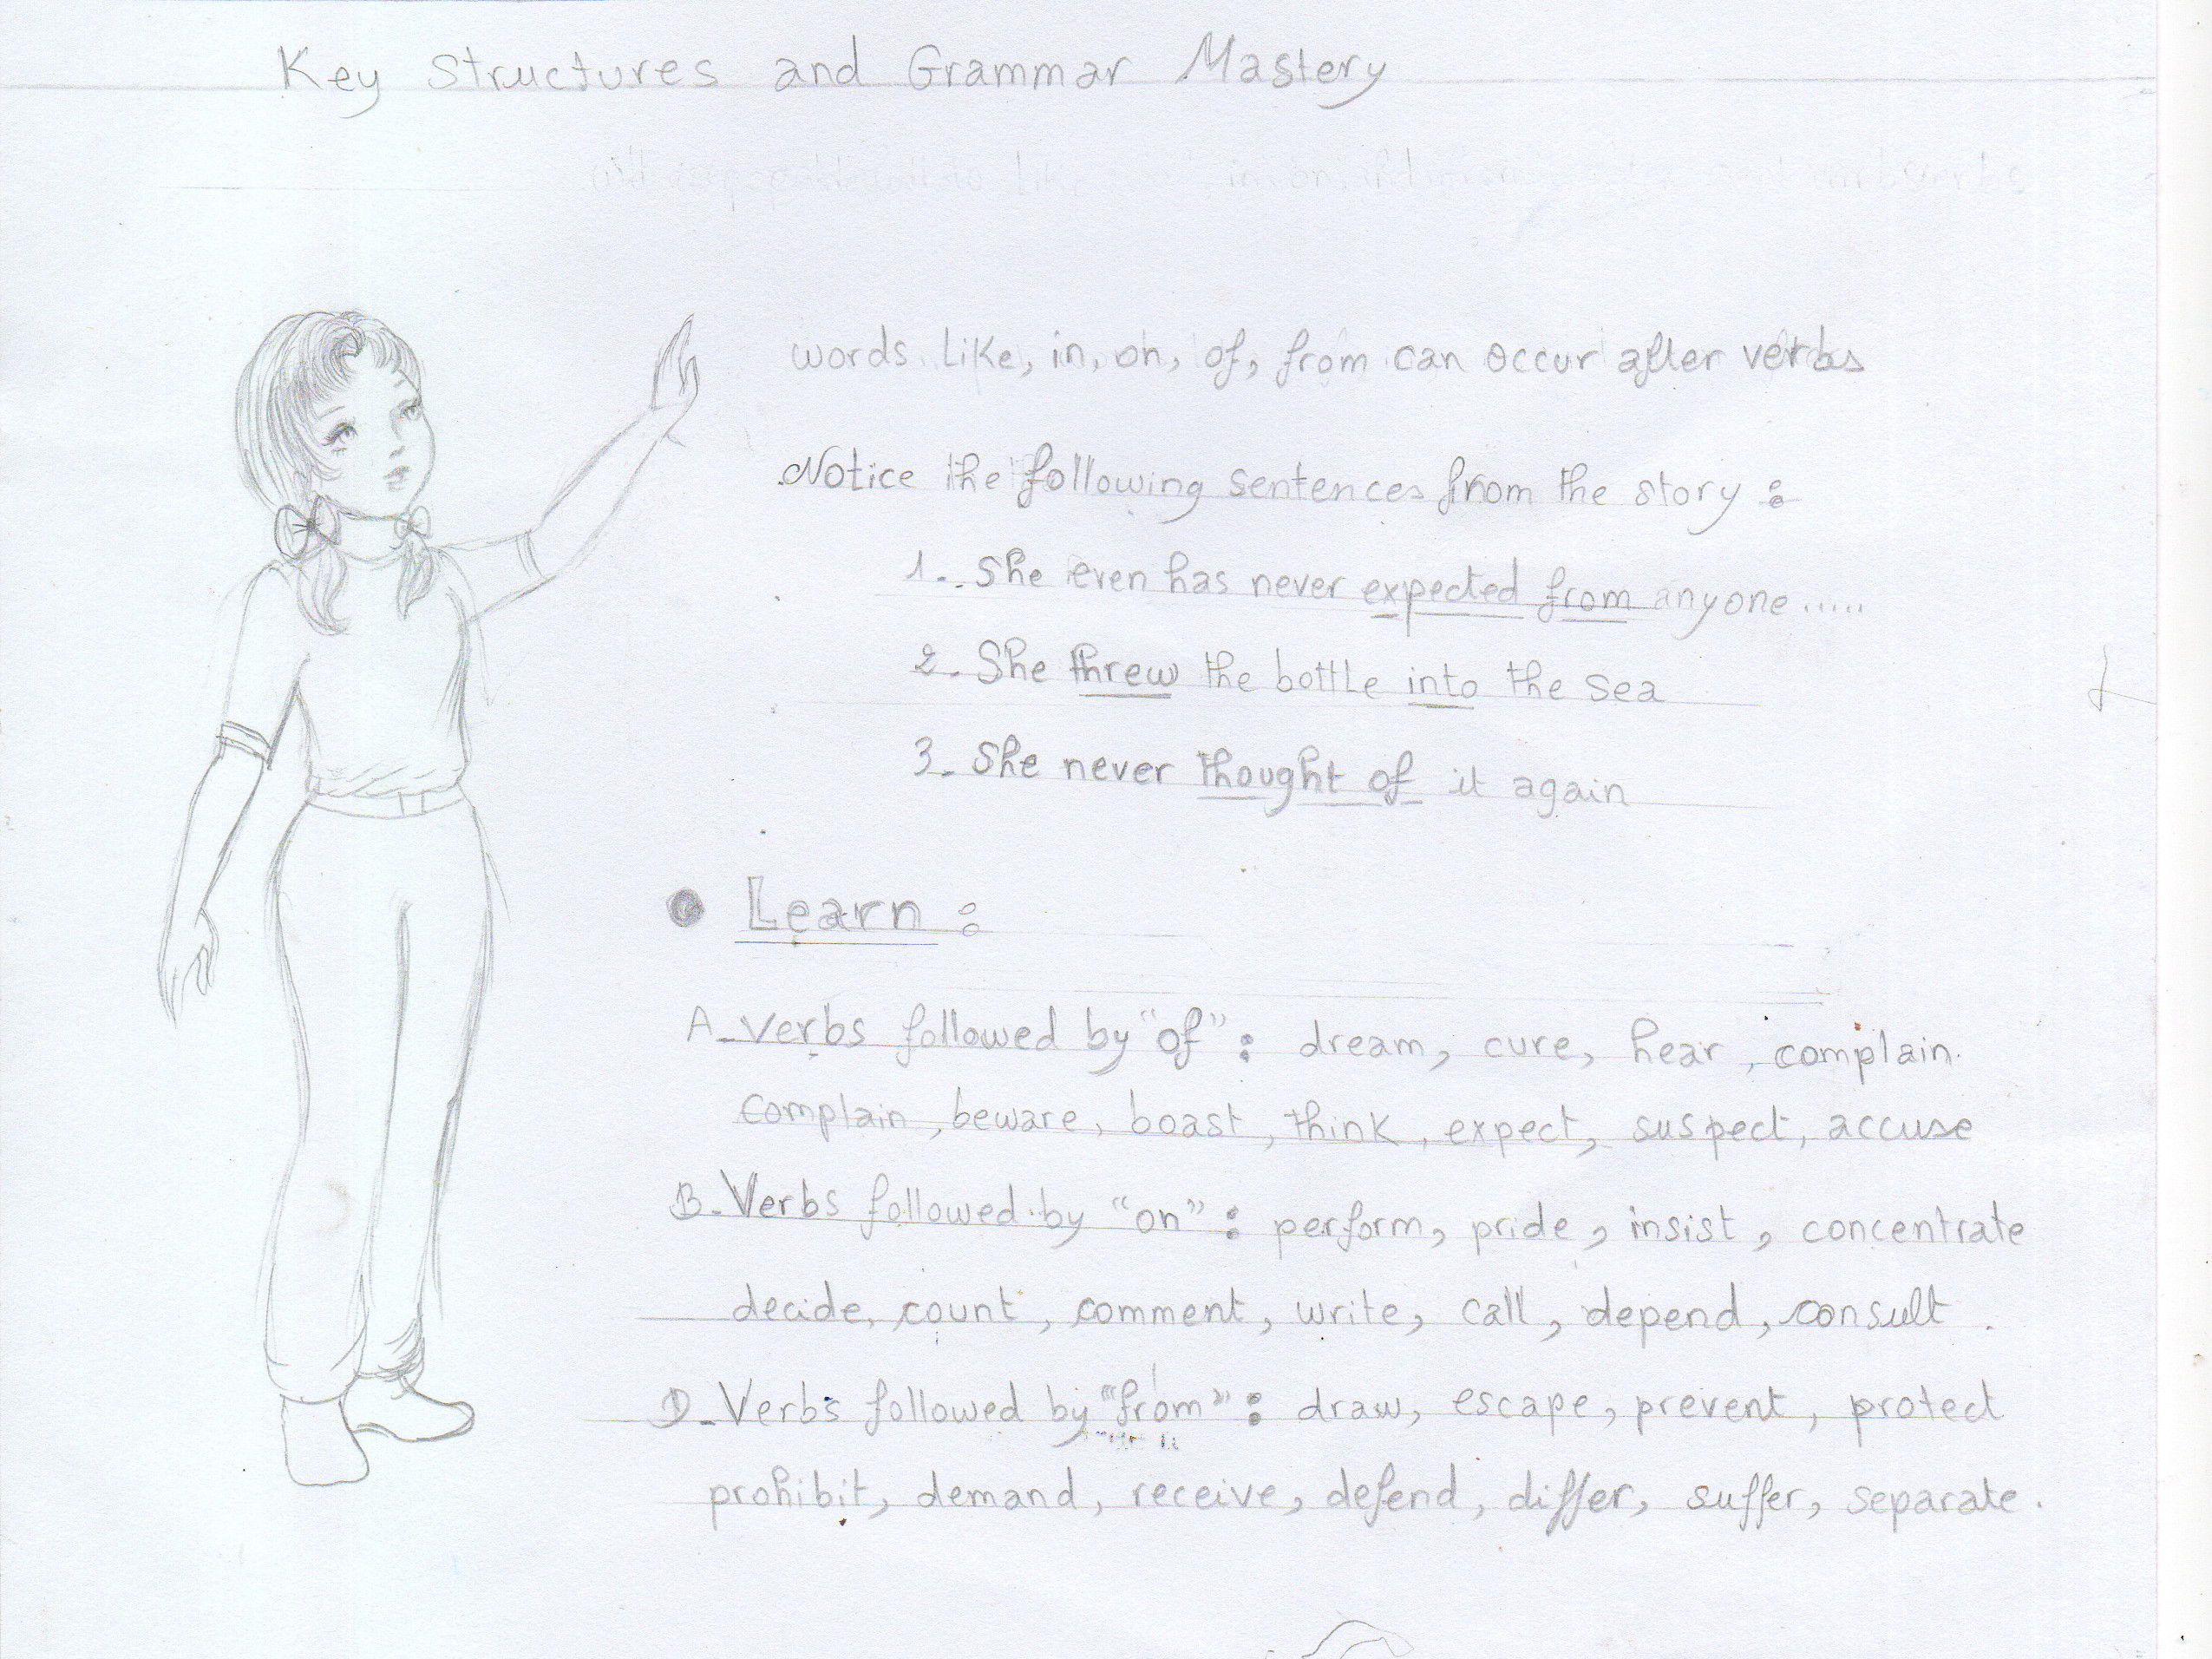 Key Structures and Grammar Mastery
words like, in, on, of, from can occur after verbs
Notice the following sentences from the story :
1. She even has never expected from anyone .....
2. She threw the bottle into the sea
3. She never thought of it again
Learn :
A. Verbs followed by "of" : dream, cure, hear, complain.
complain, beware, boast, think, expect, suspect, accuse
B. Verbs followed by "on" : perform, pride, insist, concentrate
decide, count, comment, write, call, depend, consult.
D. Verbs followed by "from" : draw, escape, prevent, protect
prohibit, demand, receive, defend, differ, suffer, separate.